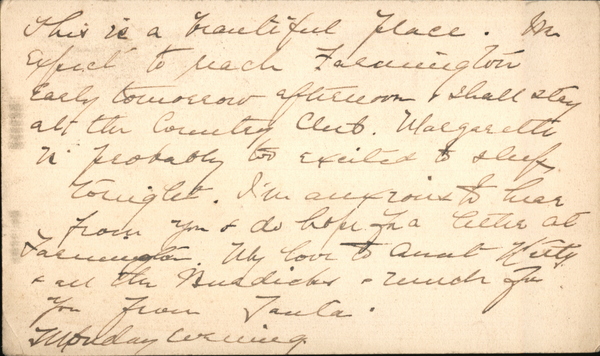 This is a beautiful place. We
expect to reach Farmington
early tomorrow afternoon & shall stay
at the Country Club. Margarette
is probably too excited to sleep
tonight. I'm anxious to hear
from you & do hope for a letter at
Farmington. My love to Aunt Kitty
& all the Burdicks & much for
you from Tanta.
Monday evening